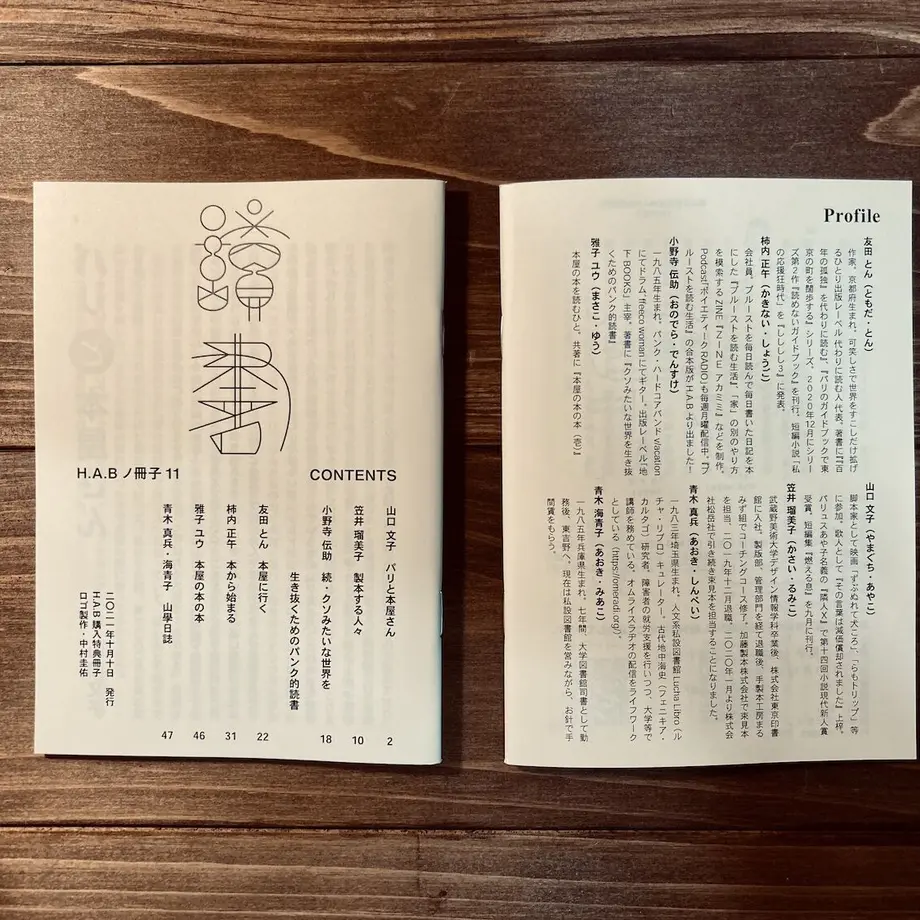 讀書
H.A.B ノ冊子 11
CONTENTS
山口 文子　パリと本屋さん　2
笠井 瑠美子　製本する人々　10
小野寺 伝助　続・クソみたいな世界を　18
生き抜くためのパンク的読書
友田 とん　本屋に行く　22
柿内 正午　本から始まる　31
雅子 ユウ　本屋の本の本　46
青木 真兵・海青子　山學日誌　47
二〇二一年十月十日　発行
H.A.B購入特典冊子
ロゴ製作・中村圭佑
Profile
友田 とん（ともだ・とん）
作家、京都府生まれ。可笑しさで世界をすこしだけ拡げ
るひとり出版レーベル 代わりに読む人代表。著書に『『百
年の孤独』を代わりに読む』、『パリのガイドブックで東
京の町を闊歩する』シリーズ。2020年12月にシリー
ズ第2作『読めないガイドブック』を刊行。短編小説「私
の応援狂時代」を『しししし3』に発表。
柿内 正午（かきない・しょうご）
会社員。プルーストを毎日読んで毎日書いた日記を本
にした『プルーストを読む生活』、「家」の別のやり方
を模索するZINE『ZINE アカミミ』などを制作。
Podcast「ポイエティークRADIO」も毎週月曜配信中。『プ
ルーストを読む生活』の合本版がH.A.Bより出ました！
小野寺 伝助（おのでら・でんすけ）
一九八五年生まれ。パンク・ハードコアバンドv/acation
にてドラム、ffeeco womanにてギター。出版レーベル「地
下BOOKS」主宰。著書に『クソみたいな世界を生き抜
くためのパンク的読書』
雅子 ユウ（まさこ・ゆう）
本屋の本を読むひと。共著に『本屋の本の本（壱）』
山口 文子（やまぐち・あやこ）
脚本家として映画「ずぶぬれて犬ころ」、「らもトリップ」等
に参加。歌人として『その言葉は減価償却されました』上梓。
パリュスあや子名義の『隣人X』で第十四回小説現代新人賞
受賞。短編集『燃える息』を九月に刊行。
笠井 瑠美子（かさい・るみこ）
武蔵野美術大学デザイン情報学科卒業後、株式会社東京印書
館に入社。製版部、管理部門を経て退職後、手製本工房まる
みず組でコーチングコース修了。加藤製本株式会社で束見本
を担当。二〇一九年十二月退職、二〇二〇年一月より株式会
社松岳社で引き続き束見本を担当することになりました。
青木 真兵（あおき・しんぺい）
一九八三年埼玉県生まれ。人文系私設図書館Lucha Libro（ル
チャ・リブロ）キュレーター。古代地中海史（フェニキア・
カルタゴ）研究者。障害者の就労支援を行いつつ、大学等で
講師を務めている。オムライスラヂオの配信をライフワーク
としている（https://omeradi.org/）。
青木 海青子（あおき・みあこ）
一九八五年兵庫県生まれ。七年間、大学図書館司書として勤
務後、東吉野へ。現在は私設図書館を営みながら、お針で手
間賃をもらう。